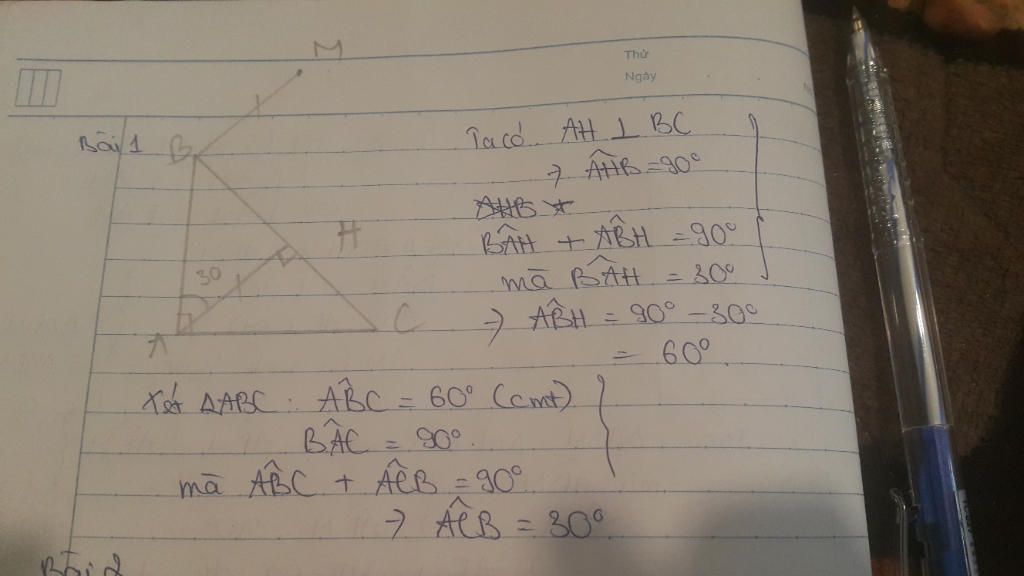 Thứ
Ngày
M
Bài 1
B
30
H
A
C
Ta có AH ⊥ BC
→ AĤB = 90°
BÂH + AB̂H = 90°
mà BÂH = 30°
→ AB̂H = 90° - 30°
= 60°
Xét ΔABC: AB̂C = 60° (cmt)
BÂC = 90°
mà AB̂C + AĈB = 90°
→ AĈB = 30°
Bài 2